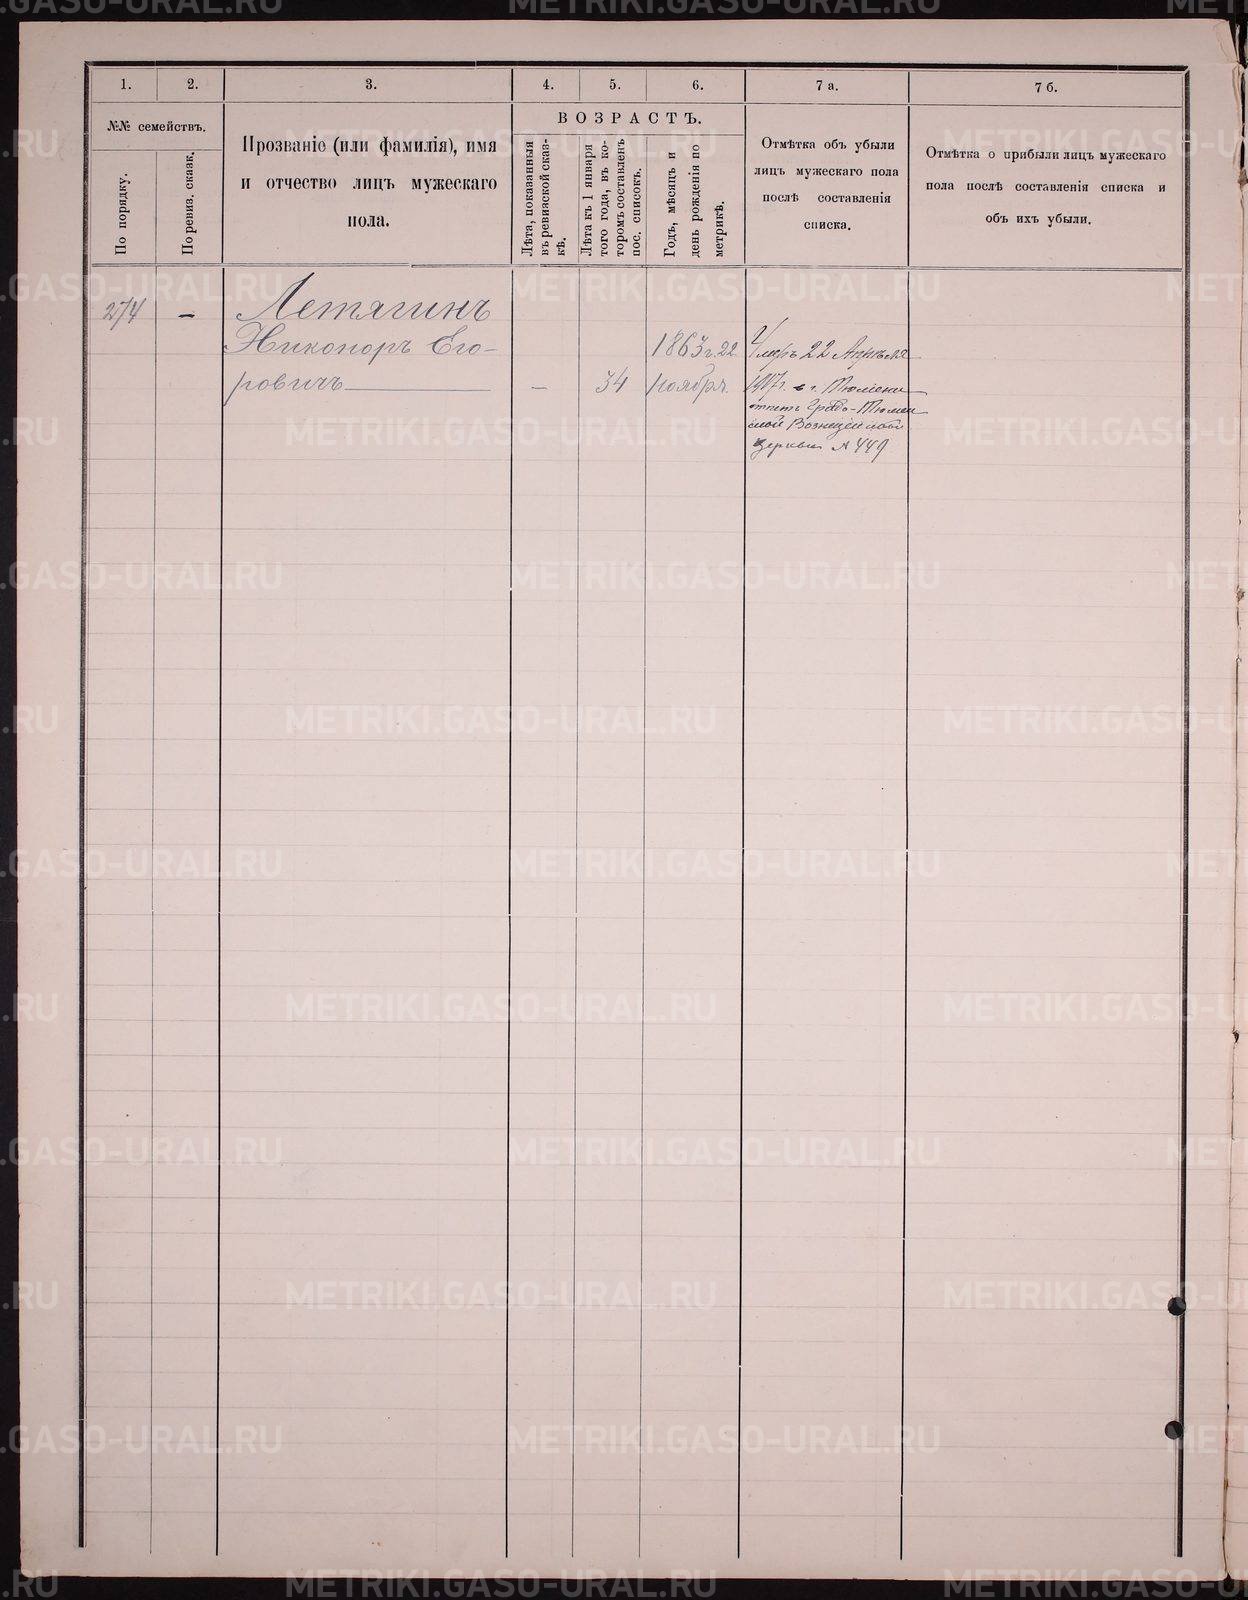 1.
2.
3.
4.
5.
6.
7 а.
7 б.
№№ семействъ.
По порядку.
По ревиз. сказк.
Прозваніе (или фамилія), имя
и отчество лицъ мужескаго
пола.
ВОЗРАСТЪ.
Лѣта, показанныя
въ ревизской сказ-
кѣ.
Лѣта къ 1 января
того года, въ ко-
торомъ составленъ
пос. списокъ.
Годъ, мѣсяцъ и
день рожденія по
метрикѣ.
Отмѣтка объ убыли
лицъ мужескаго пола
послѣ составленія
списка.
Отмѣтка о прибыли лицъ мужескаго
пола послѣ составленія списка и
объ ихъ убыли.
274
-
Летягинъ
Никоноръ Его-
ровичъ
-
34
1863 г. 22
ноября.
Умеръ 22 Апрѣля
г. Тюмени
отпетъ Градо-Тюмен
ской
церкви № 449
METRIKI.GASO-URAL.RU